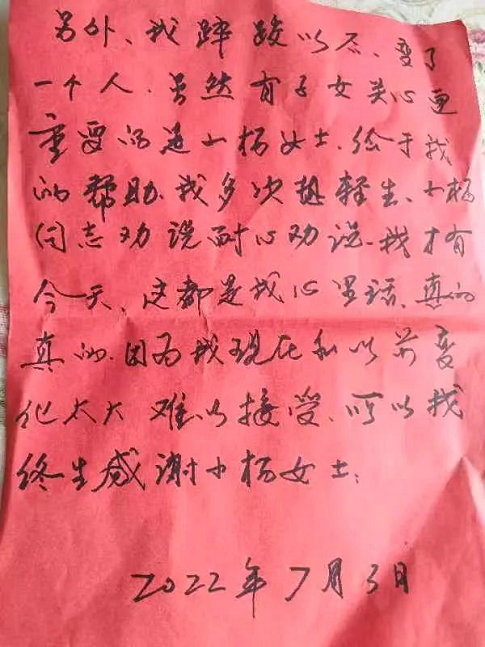 另外、我蹄跛以后、变了
一个人、虽然有子女关心更
重要的是小杨女士、给于我
的帮助、我多次想轻生、小杨
同志劝说耐心劝说、我才有
今天、这都是我心里话、真的
真的、因为我现在和以前变
化太大难以接受、所以我
终生感谢小杨女士；
2022年7月3日